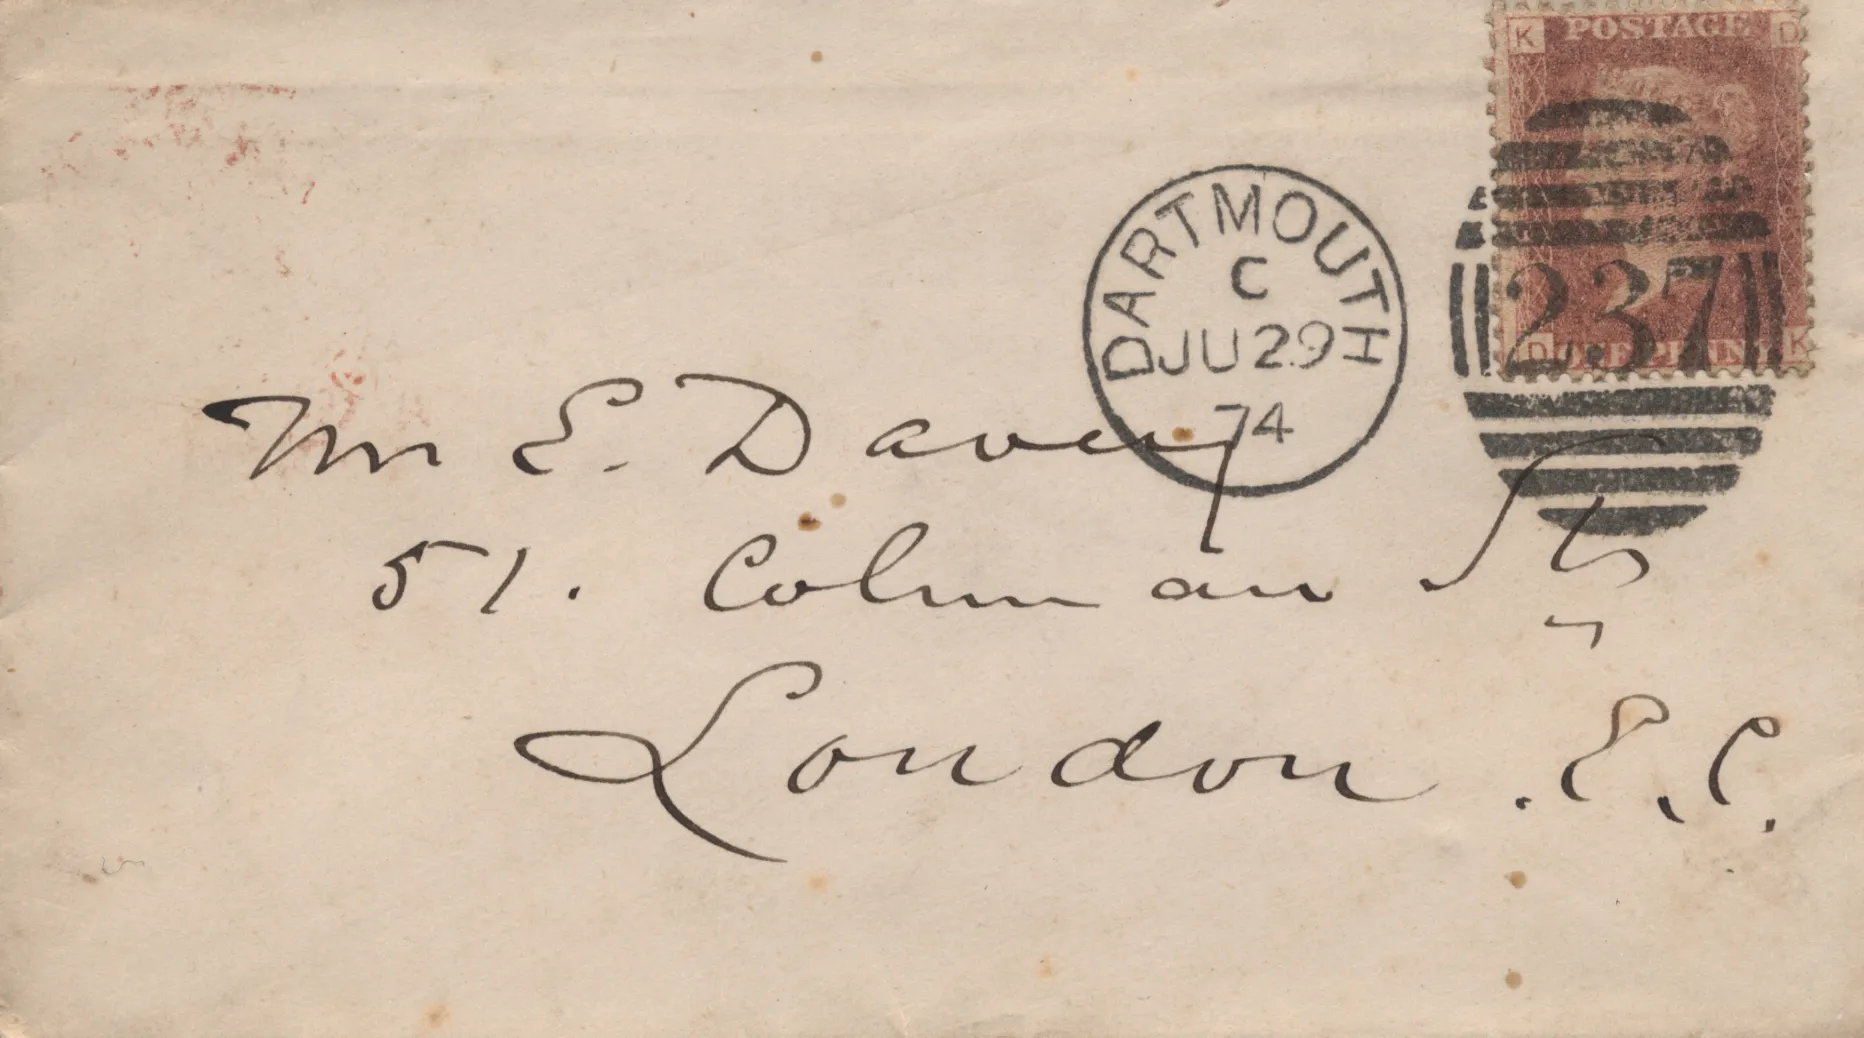 K POSTAGE D
DARTMOUTH
C
JU 29
74
237
D ONE PENNY K
Mr E. Davey
51. Colman St,
London. E.C.